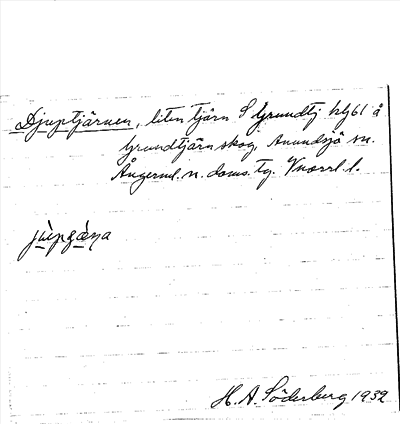 Djuptjärnen, liten tjärn S Grundtj hbl61 å
Grundtjärn skog, Anundsjö sn.
Ångerml. n. doms. tg. Vnorrl. l.
jùpgæ̀ṇa
H. A. Söderberg 1932